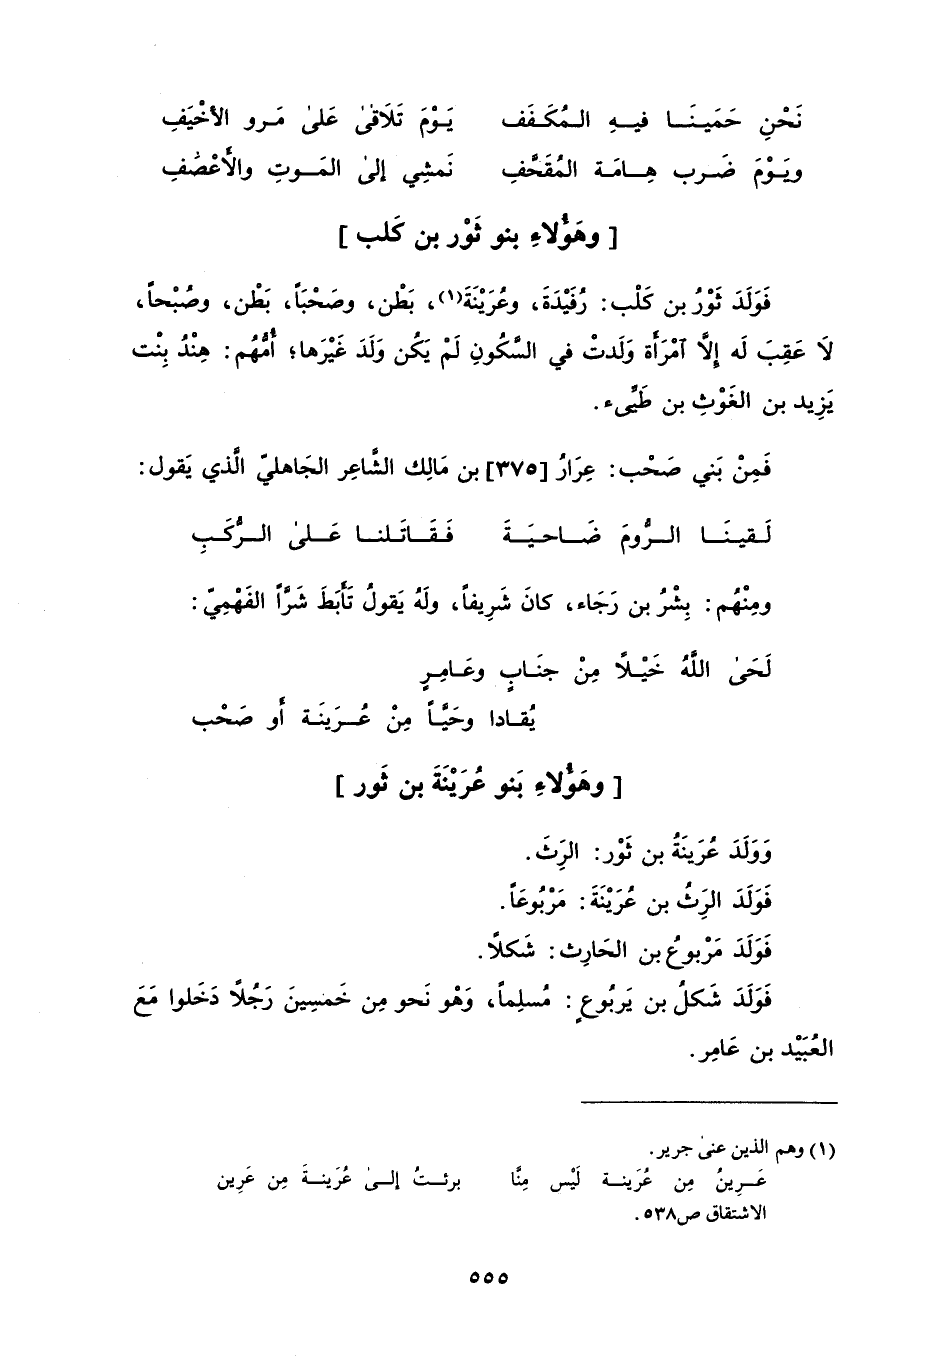 نَحْنِ حَمَينَــا فيــهِ الـمُكَفَف    يَـوْمَ تَلَاقىٰ عَلىٰ مَـرو الأخْيَفِ
ويَـوْمَ ضَـرب هِـامَـة المُقَحَّفِ    نَمشِي إلىٰ المَـوتِ والأَعْصَفِ
[ وهَؤُلاءِ بنو ثَوْر بن كَلب ]
فَوَلَدَ ثَوْرُ بن كَلْب: رُفَيْدَةَ، وعُرَيْنَةَ(١)، بَطْن، وصَحْبَاً، بَطْن، وصُبْحاً،
لَا عَقِبَ لَه إلَّا آمْرَأَة وَلَدتْ في السَّكُونِ لَمْ يَكُن وَلَد غَيْرَها؛ أُمُّهُم: هِنْدُ بِنْت
يَزِيد بن الغَوْثِ بن طَيِّىء.
فَمِنْ بَني صَحْب: عِرَارُ [٣٧٥] بن مَالِك الشَّاعِر الجَاهليّ الَّذي يَقول:
لَـقينَــا الــرُّومَ ضَــاحيَــةَ    فَـقَـاتَـلنـا عَــلىٰ الــرُّكَـبِ
ومِنْهُم: بِشْرُ بن رَجَاء، كانَ شَرِيفاً، ولَهُ يَقولُ تَأَبَطَ شَرَّاً الفَهْمِيّ:
لَحَىٰ اللَّهُ خَيْـلًا مِنْ جنَـابٍ وعَـامِـرٍ
يُقـادا وحَيَّـاً مِنْ عُــرَينَـة أو صَحْب
[ وهَؤُلاءِ بَنو عُرَيْنَةَ بن ثَور ]
وَوَلَدَ عُرَينَةُ بن ثَوْر: الرَِثَ.
فَوَلَدَ الرَِثُ بن عُرَيْنَةَ: مَرْبُوعَاً.
فَوَلَدَ مَرْبوعُ بن الحَارِث: شَكلًا.
فَوَلَدَ شَكلُ بن يَربُوعٍ: مُسلِماً، وَهْو نَحو مِن خَمسِينَ رَجُلًا دَخَلوا مَعَ
العُبَيْد بن عَامِر.
(١) وهم الذين عنىٰ جرير.
عَــرِينُ مِن عُرَينــة لَيْس مِنَّا    برئــتُ إلــىٰ عُرَينــةَ مِن عَرِين
الاشتقاق ص٥٣٨.
٥٥٥